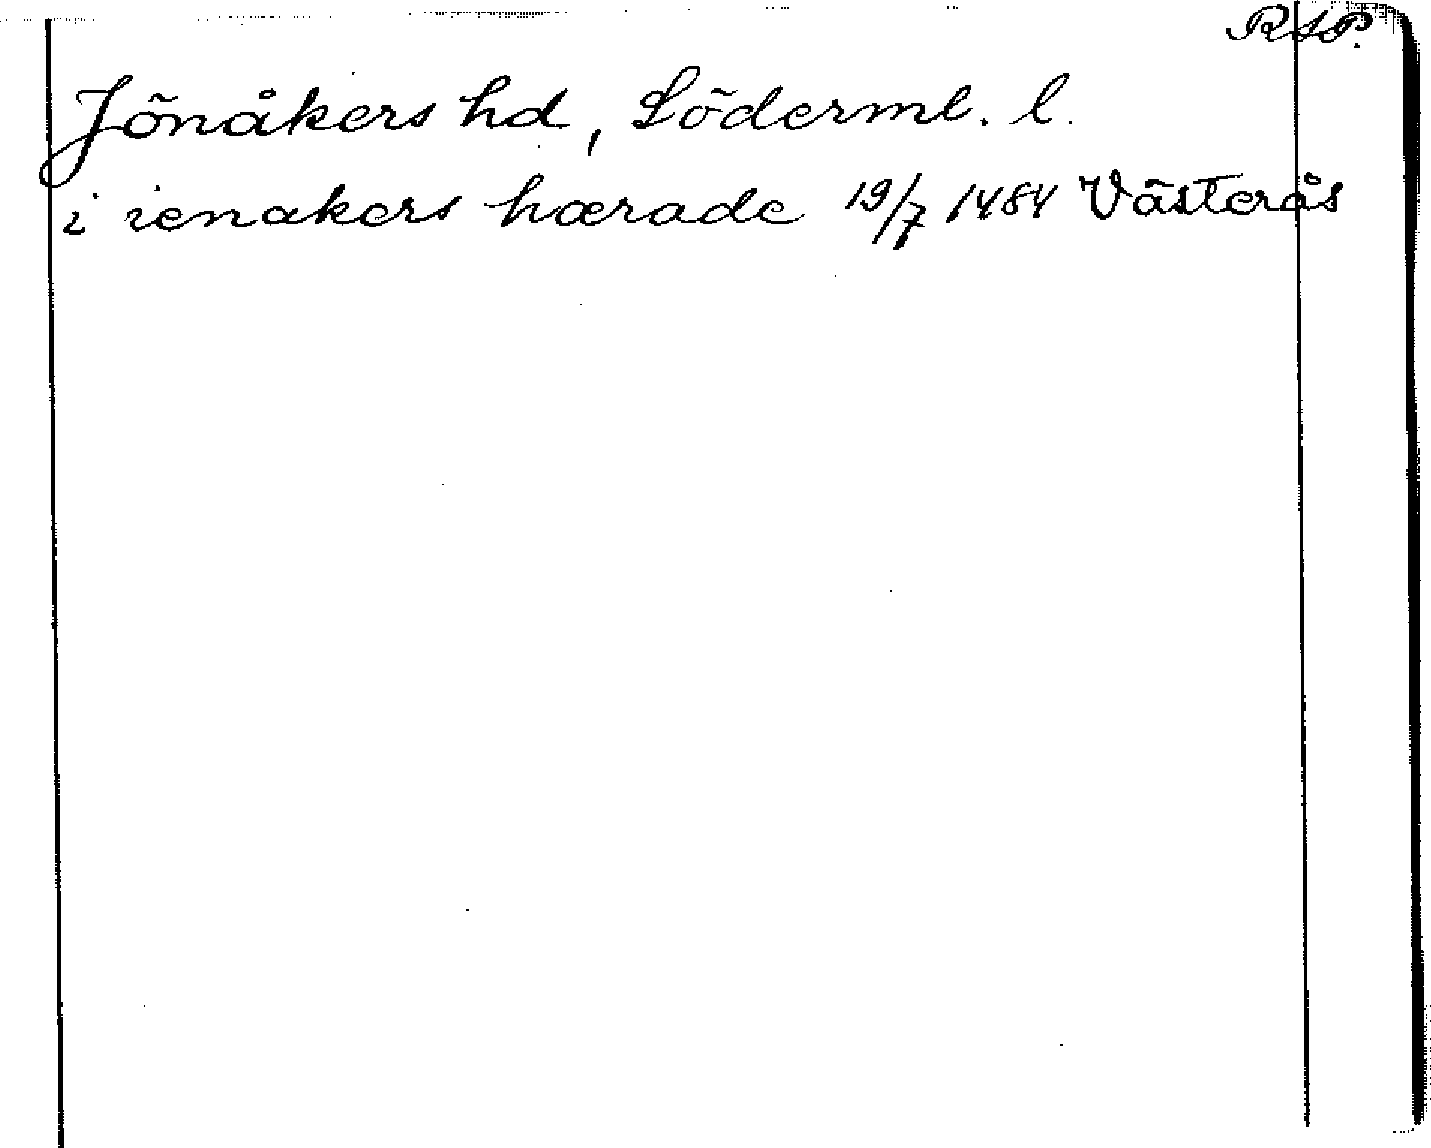 RAP.
Jönåkers hd, Söderml. l.
i ienakers hærade 19/7 1484 Västerås